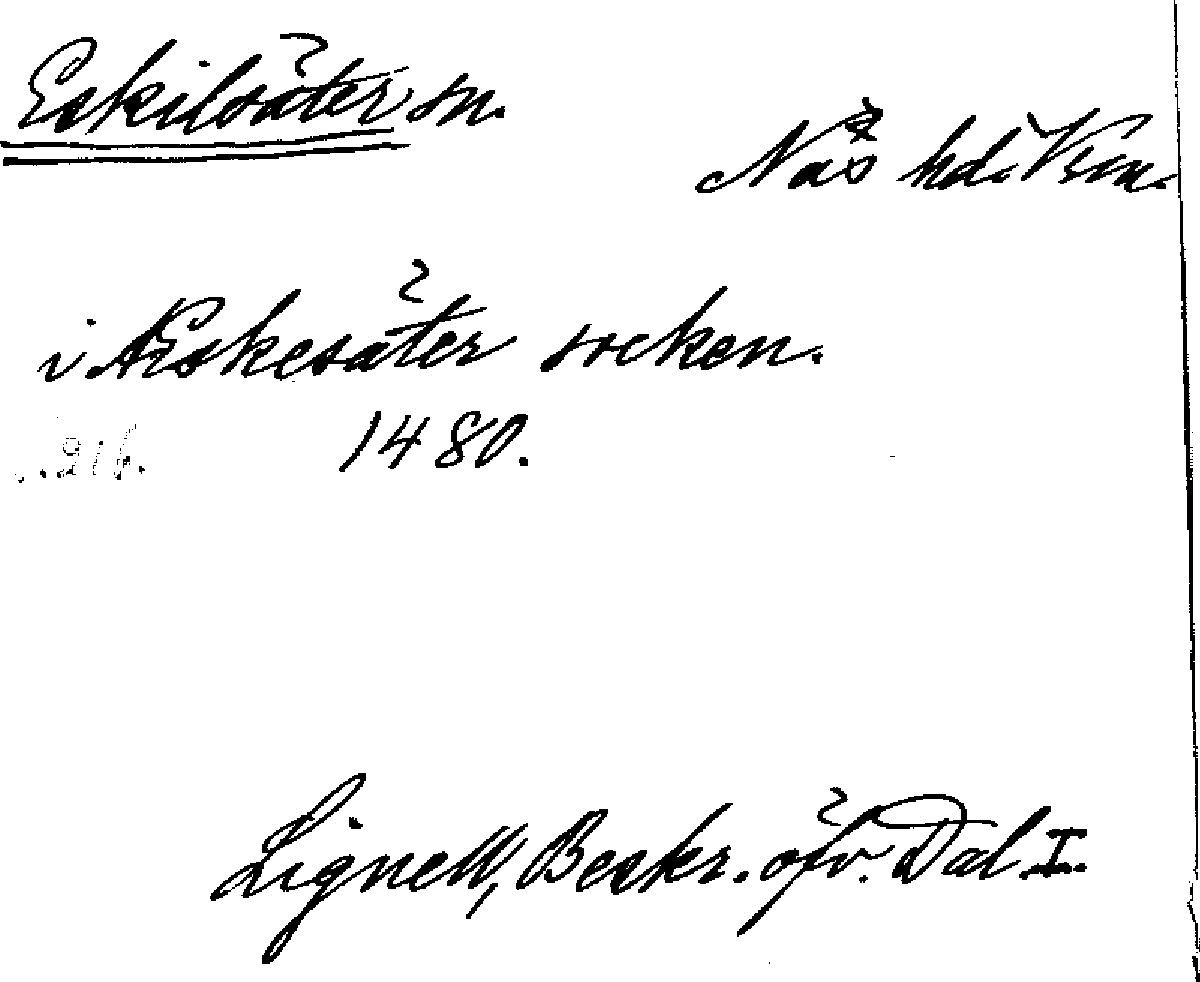 Eskilsäter sn.
Näs hd. Vrm.
i Æskesäter socken.
1480.
Lignell, Beskr. öfv. Dal I.